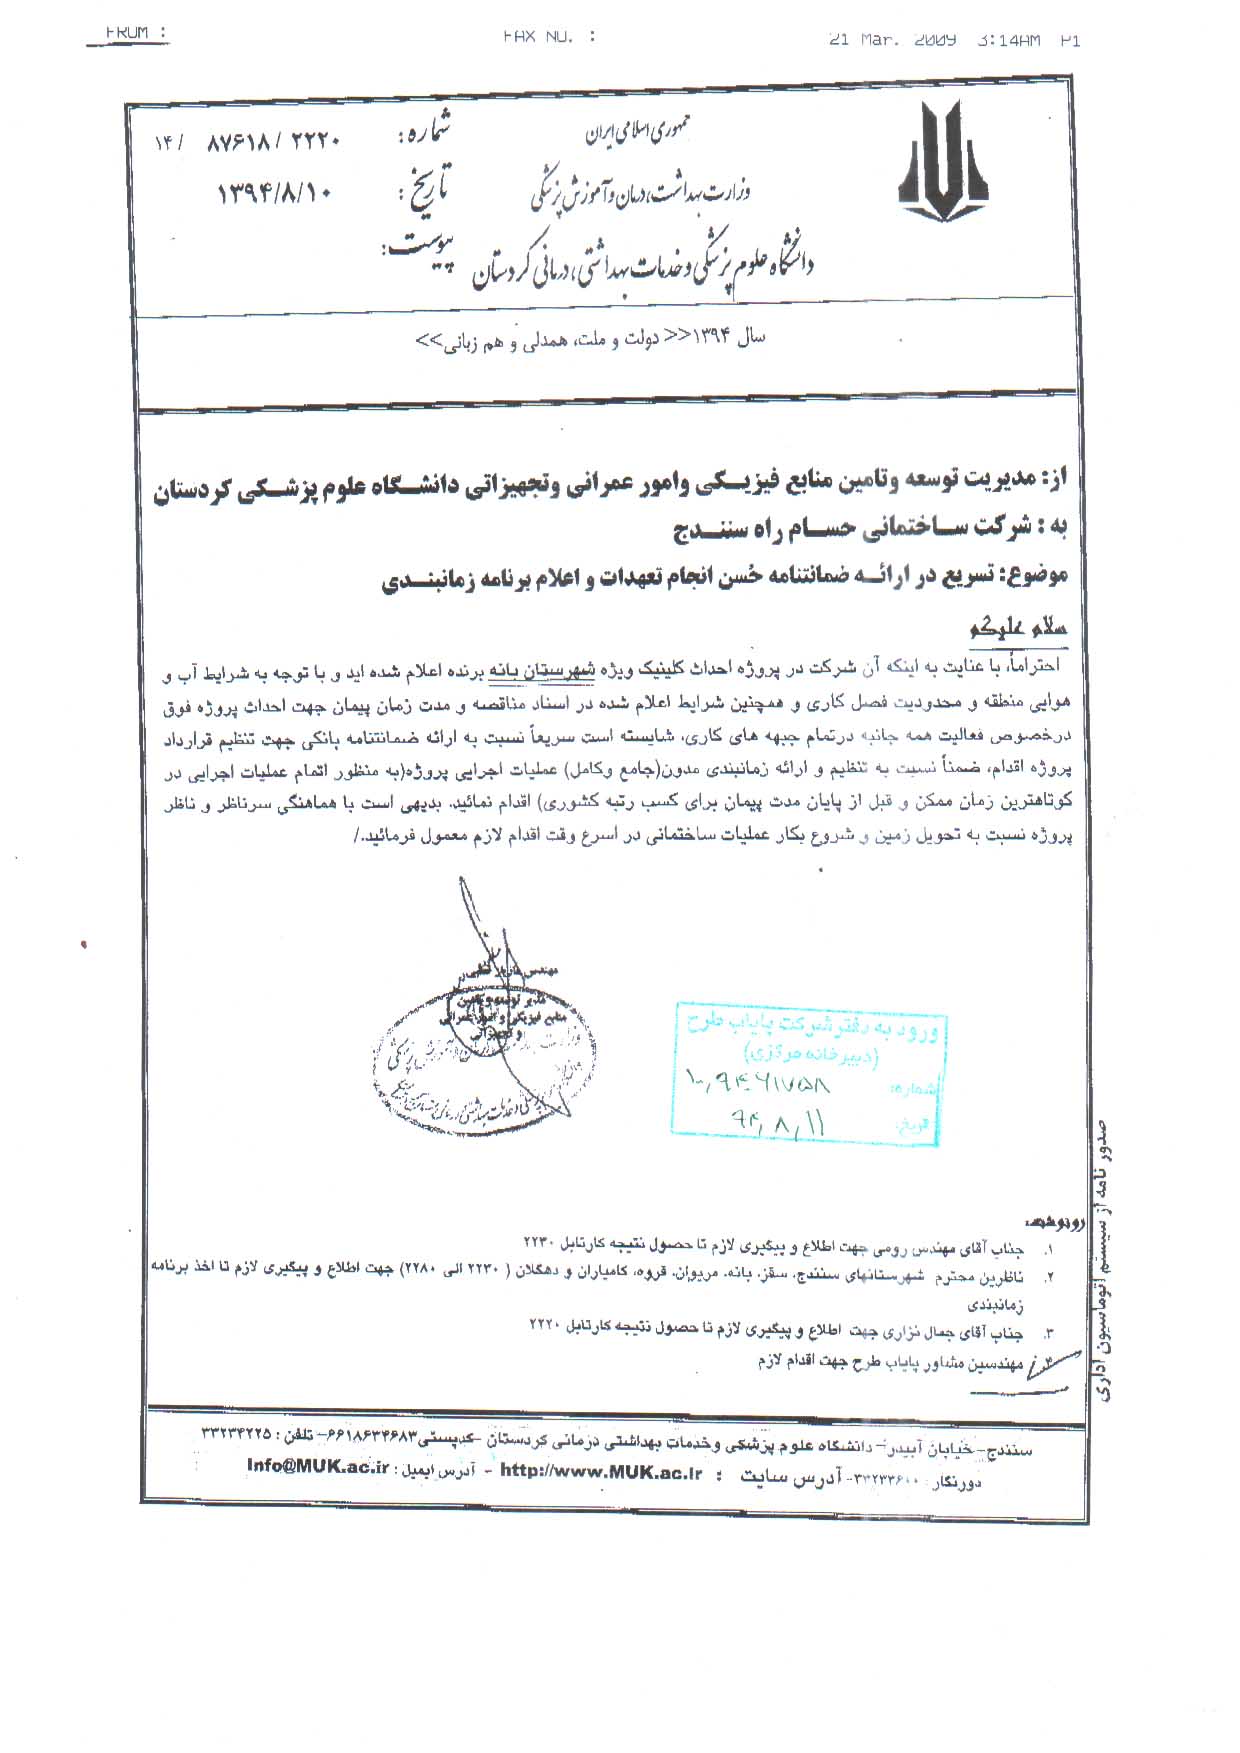 FROM :
FAX NO. :
21 Mar. 2009 3:14AM P1
جمهوری اسلامی ایران
وزارت بهداشت، درمان و آموزش پزشکی
دانشگاه علوم پزشکی و خدمات بهداشتی، درمانی کردستان
شماره: ۱۴/ ۸۷۶۱۸/۲۲۲۰
تاریخ: ۱۳۹۴/۸/۱۰
پیوست:
سال ۱۳۹۴<< دولت و ملت، همدلی و هم زبانی>>
از: مدیریت توسعه وتامین منابع فیزیکی وامور عمرانی وتجهیزاتی دانشگاه علوم پزشکی کردستان
به : شرکت ساختمانی حسام راه سنندج
موضوع: تسریع در ارائه ضمانتنامه حُسن انجام تعهدات و اعلام برنامه زمانبندی
سلام علیکم
احتراماً، با عنایت به اینکه آن شرکت در پروژه احداث کلینیک ویژه شهرستان بانه برنده اعلام شده اید و با توجه به شرایط آب و
هوایی منطقه و محدودیت فصل کاری و همچنین شرایط اعلام شده در اسناد مناقصه و مدت زمان پیمان جهت احداث پروژه فوق
درخصوص فعالیت همه جانبه درتمام جبهه های کاری، شایسته است سریعاً نسبت به ارائه ضمانتنامه بانکی جهت تنظیم قرارداد
پروژه اقدام، ضمناً نسبت به تنظیم و ارائه زمانبندی مدون(جامع وکامل) عملیات اجرایی پروژه(به منظور اتمام عملیات اجرایی در
کوتاهترین زمان ممکن و قبل از پایان مدت پیمان برای کسب رتبه کشوری) اقدام نمائید. بدیهی است با هماهنگی سرناظر و ناظر
پروژه نسبت به تحویل زمین و شروع بکار عملیات ساختمانی در اسرع وقت اقدام لازم معمول فرمائید./
مهندس
مدیر توسعه و تامین
منابع فیزیکی و امور عمرانی
و تجهیزاتی
ورود به دفتر شرکت پایاب طرح
(دبیرخانه مرکزی)
شماره: ۱۰,۹۴۶۱۷۵۸
تاریخ: ۹۴,۸,۱۱
صدور نامه از سیستم اتوماسیون اداری
رونوشت:
۱. جناب آقای مهندس رومی جهت اطلاع و پیگیری لازم تا حصول نتیجه کارتابل ۲۲۳۰
۲. ناظرین محترم شهرستانهای سنندج، سقز، بانه، مریوان، قروه، کامیاران و دهگلان ( ۲۲۳۰ الی ۲۲۸۰) جهت اطلاع و پیگیری لازم تا اخذ برنامه
زمانبندی
۳. جناب آقای جمال نزاری جهت اطلاع و پیگیری لازم تا حصول نتیجه کارتابل ۲۲۲۰
۴. مهندسین مشاور پایاب طرح جهت اقدام لازم
سنندج- خیابان آبیدر- دانشگاه علوم پزشکی وخدمات بهداشتی درمانی کردستان -کدپستی۶۶۱۸۶۳۴۶۸۳- تلفن : ۳۳۲۳۴۲۲۵
دورنگار : ۳۳۲۳۳۶۰۰- آدرس سایت : http://www.MUK.ac.ir - آدرس ایمیل : Info@MUK.ac.ir